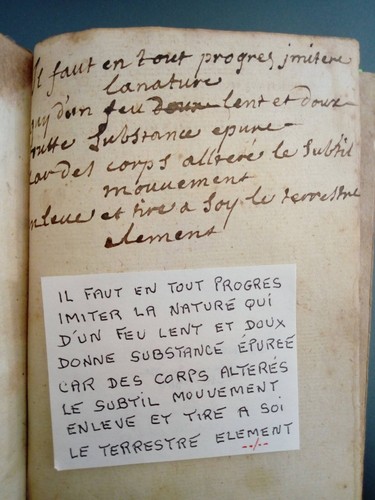 Il faut en tout progres jmitere
lanature
quy d'un feu doux lent et doux
toutte Substance epure
car des corps alteré le Subtil
mouuement
enleue et tire a Soy le terrestre
element
IL FAUT EN TOUT PROGRES
IMITER LA NATURE QUI
D'UN FEU LENT ET DOUX
DONNE SUBSTANCE ÉPUREÉ
CAR DES CORPS ALTERÉS
LE SUBTIL MOUVEMENT
ENLEVE ET TIRE A SOI
LE TERRESTRE ELEMENT